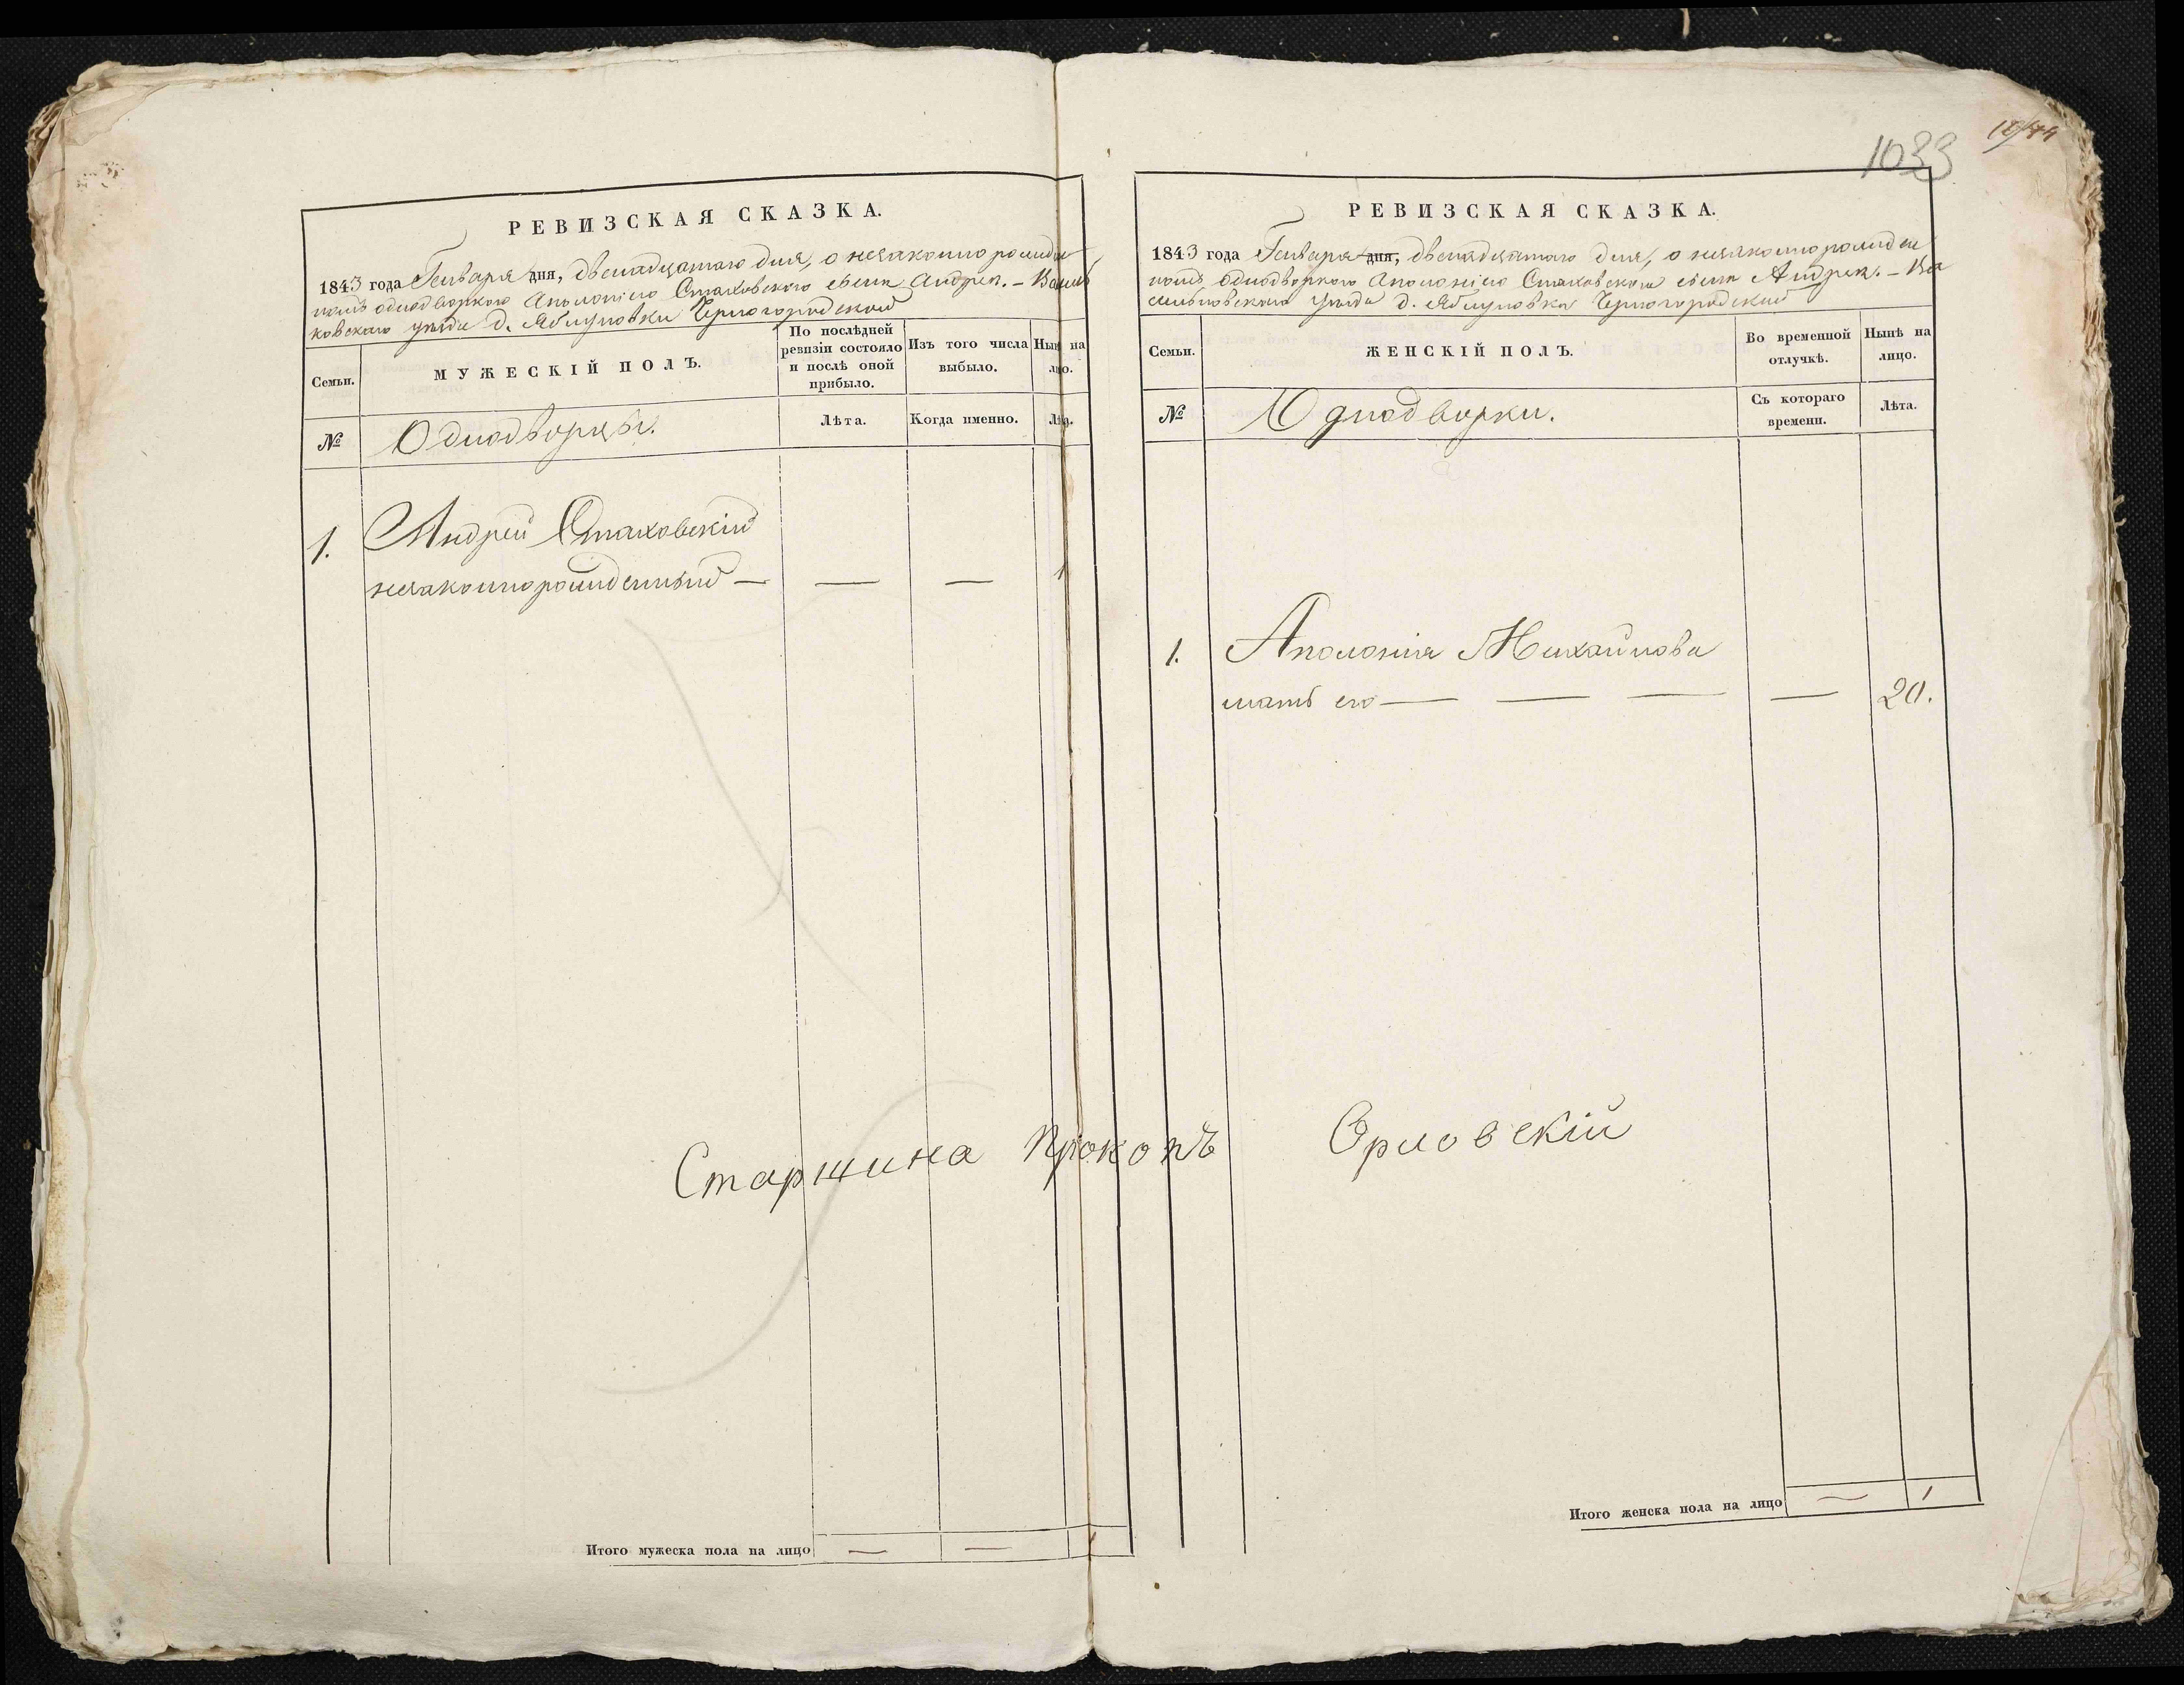 1033
РЕВИЗСКАЯ СКАЗКА.
1843 года Генваря дня, двенадцатаго дня, о незаконнорожден
номъ однодворкою Аполоніею Стаховскою сынѣ Андреѣ. — Василь
ковскаго уѣзда д. Яблуновки Черногородской
Семьи.
МУЖЕСКІЙ ПОЛЪ.
По послѣдней
ревизіи состояло
и послѣ оной
прибыло.
Изъ того числа
выбыло.
Нынѣ на
лицо.
№
Однодворцы.
Лѣта.
Когда именно.
Лѣта.
1. Андрей Стаховскій
незаконнорожденный — — — 1
Итого мужеска пола на лицо — — 1
РЕВИЗСКАЯ СКАЗКА.
1843 года Генваря дня, двенадцатаго дня, о незаконнорожден
номъ однодворкою Аполоніею Стаховскою сынѣ Андреѣ. — Ва
сильковскаго уѣзда д. Яблуновка Черногородской
Семьи.
ЖЕНСКІЙ ПОЛЪ.
Во временной
отлучкѣ.
Нынѣ на
лицо.
№
Однодворки.
Съ котораго
времени.
Лѣта.
1. Аполонія Михайлова
мать его — — — — 20.
Старшина Прокопъ Орловскій
Итого женска пола на лицо — 1